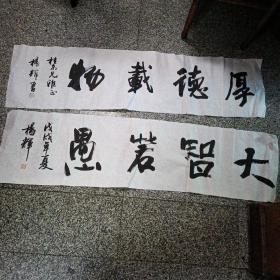 厚德載物
桂泉兄雅正
楊輝書
大智若愚
戊戌年夏
楊輝